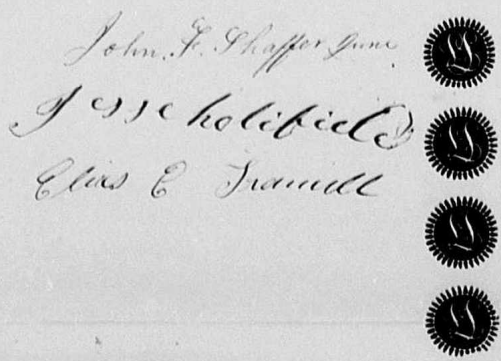 John. F. Shaffer June
Jesse holifield
Elias E Tramill